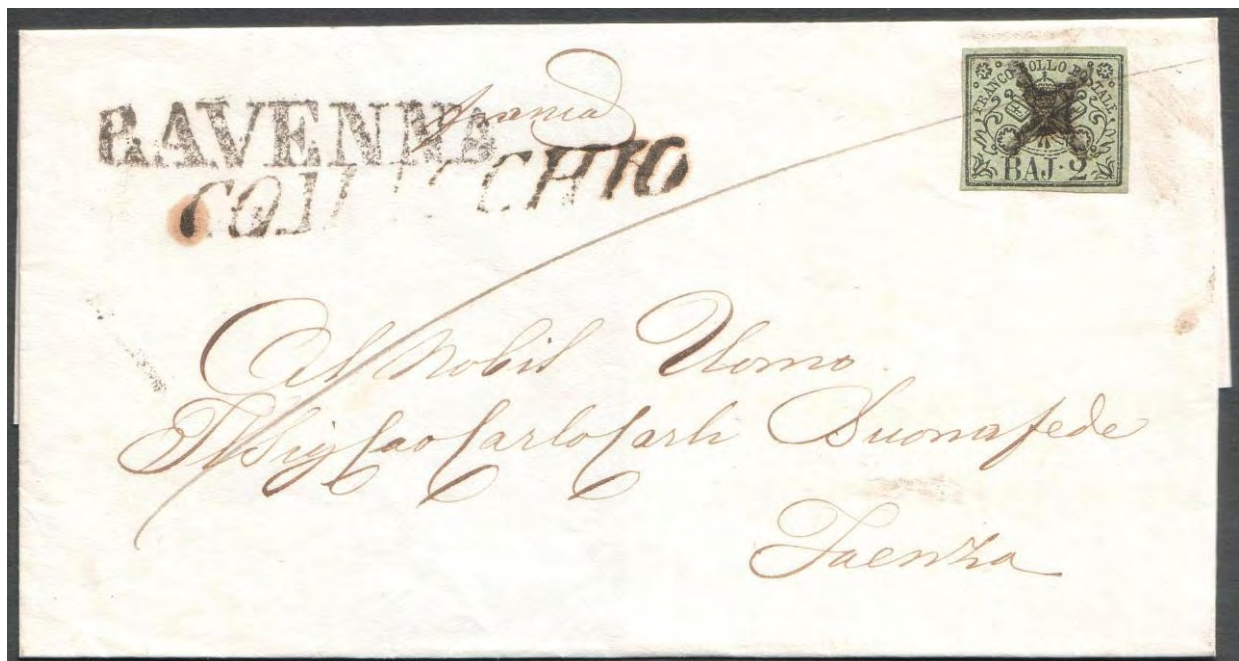 RAVENNA
franca
COMACCHIO
FRANCO BOLLO POSTALE
BAJ. 2
Al Nobil Uomo
Il Sig Cav Carlo Carli Buonafede
Faenza